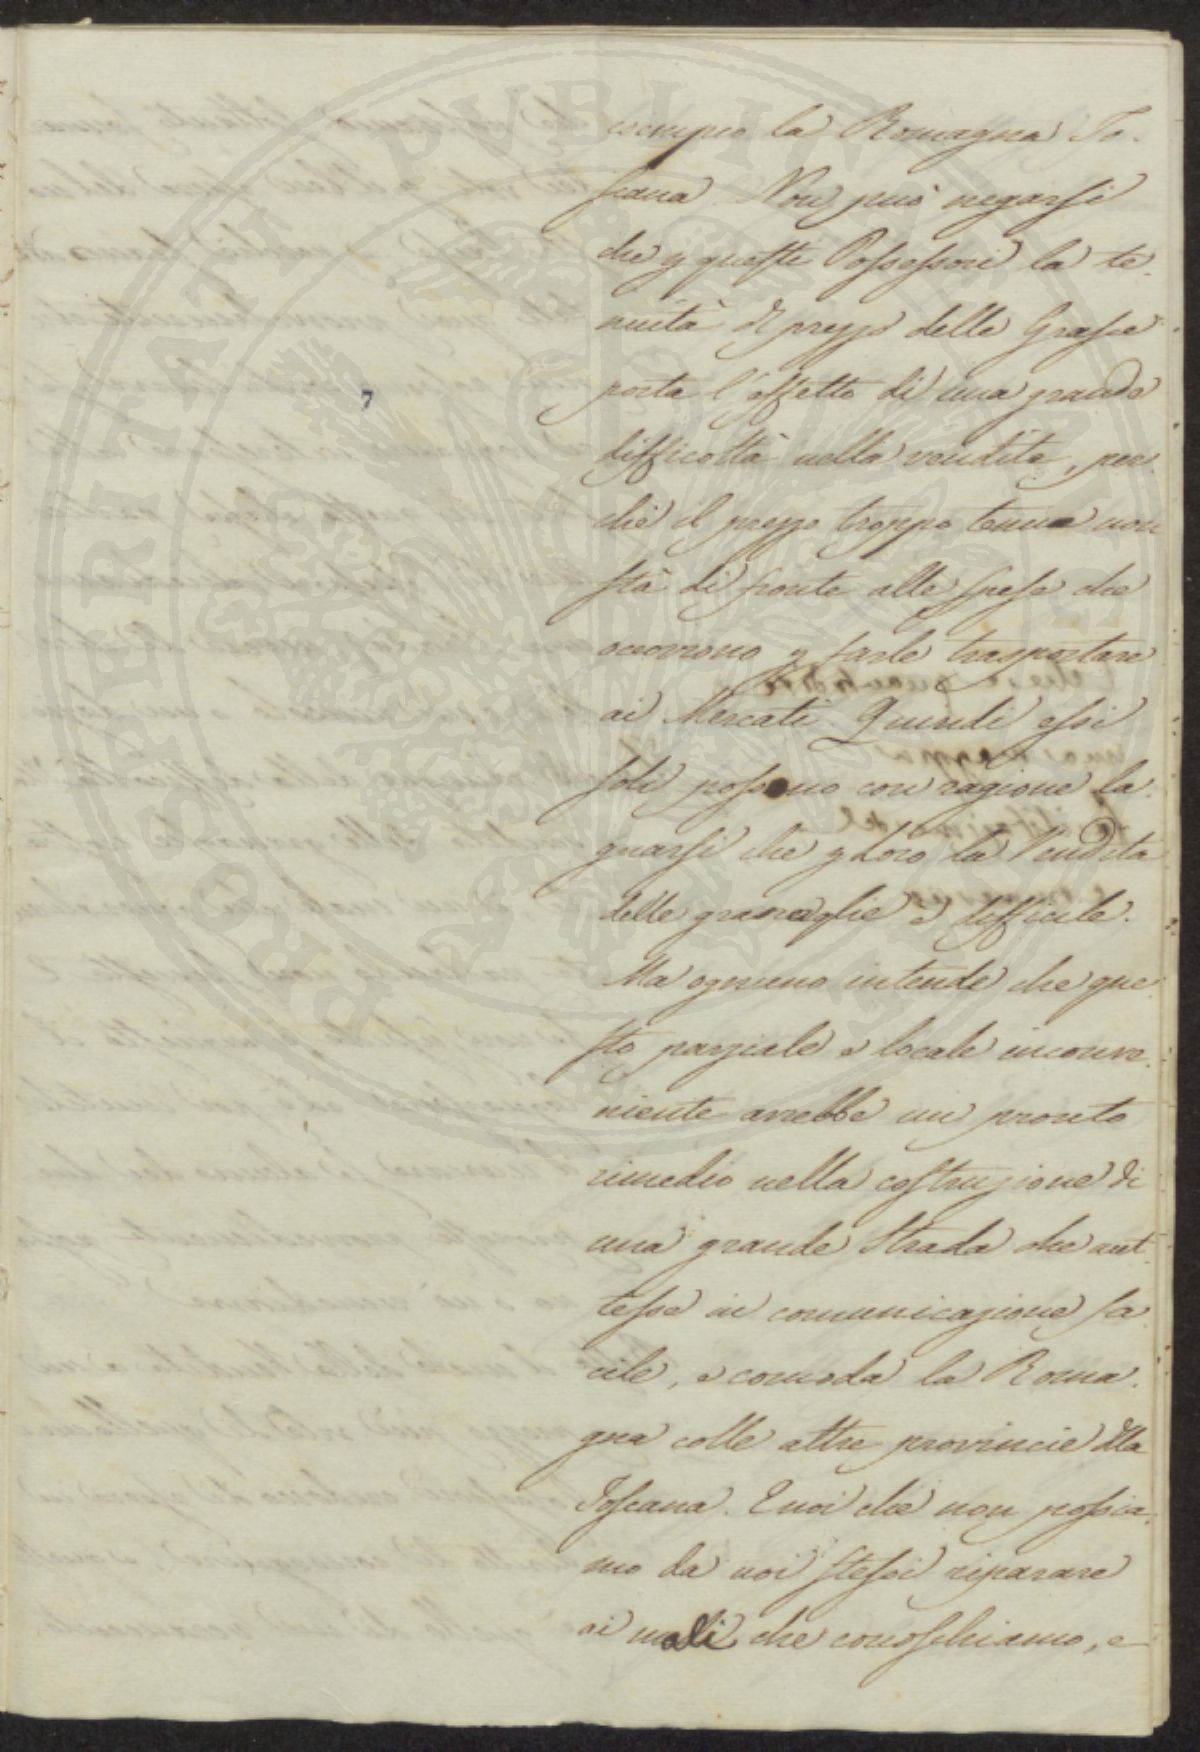 esempio la Romagna To-
scana. Non può negarsi
che p questi Possessori la te-
nuità di prezzo delle Grasce
porta l'effetto di una grande
difficoltà nella vendita, per-
chè il prezzo troppo tenue non
stà di fronte alle spese che
occorrono p farle trasportare
ai Mercati. Quindi essi
soli possono con ragione la-
gnarsi che p Loro la Vendita
delle granaglie è difficile.
Ma ognuno intende che que-
sto parziale e locale inconve-
niente avrebbe un pronto
rimedio nella costruzione di
una grande Strada che met-
tesse in comunicazione fa-
cile, e comoda la Roma-
gna colle altre provincie dlla
Toscana. E noi che non possia-
mo da noi stessi riparare
ai mali che conoschiamo, e
7
PROSPERITATI PVBLICAE